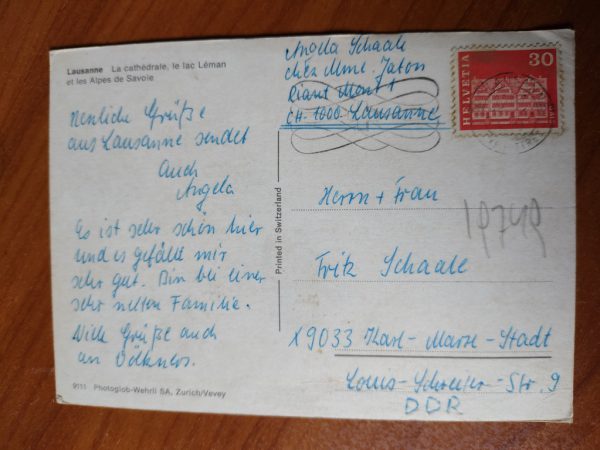 Lausanne La cathédrale, le lac Léman
et les Alpes de Savoie
Angela Schaale
chez Mme. Jaton
Riant Mont 1
CH-1000 Lausanne
HELVETIA 30
Grüße
aus Lausanne sendet
Auch
Angela
Es ist sehr schön hier
und es gefällt mir
sehr gut. Bin bei einer
sehr netten Familie.
Viele Grüße auch
an
Printed in Switzerland
Herrn + Frau
Fritz Schaale
X9033 Karl-Marx-Stadt
Louis-Schreiter-Str. 9
DDR
9111 Photoglob-Wehrli SA, Zurich/Vevey